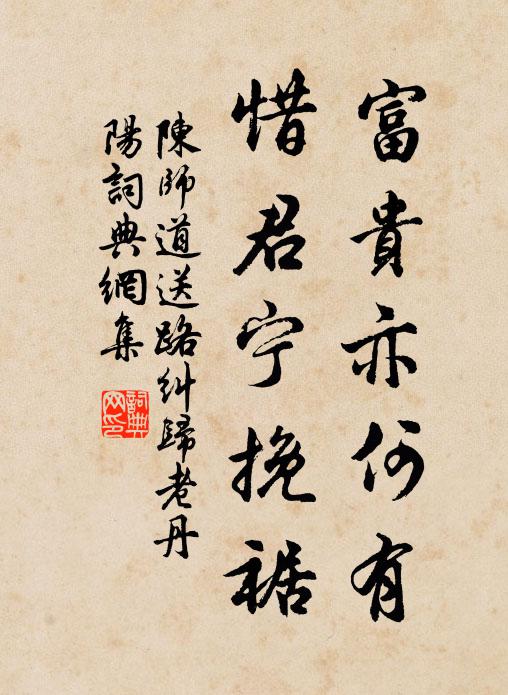 富貴亦何有
惜君宁挽裾
陳師道送路糾歸老丹
陽詞典網集
詞典
网印